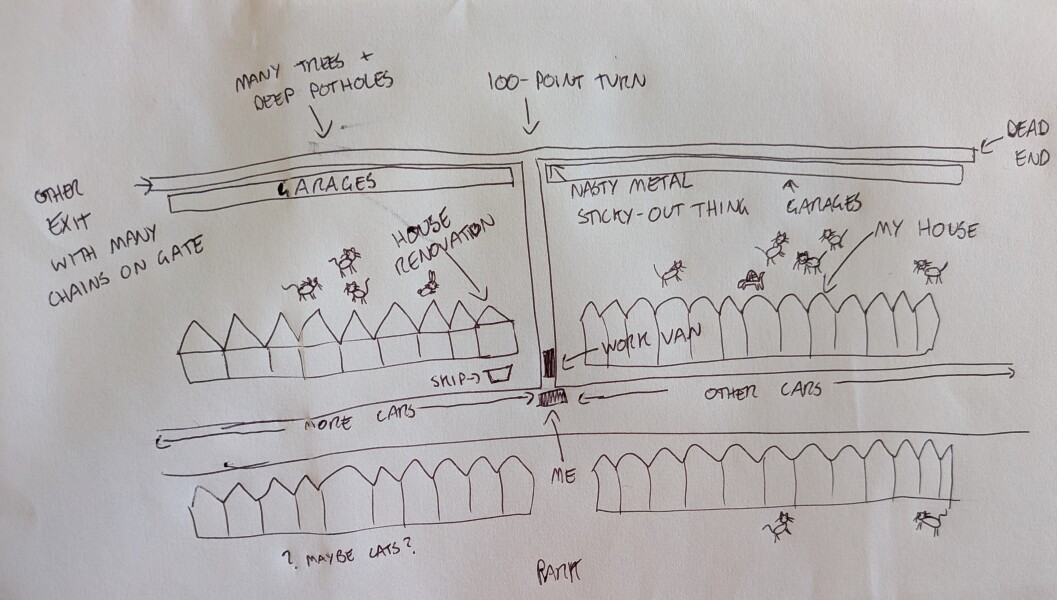 MANY TREES +
DEEP POTHOLES
100-POINT TURN
DEAD
END
OTHER
EXIT
WITH MANY
CHAINS ON GATE
GARAGES
NASTY METAL
STICKY-OUT THING
GARAGES
HOUSE
RENOVATION
MY HOUSE
WORK VAN
SKIP
MORE CARS
OTHER CARS
ME
? MAYBE CATS?
PARK